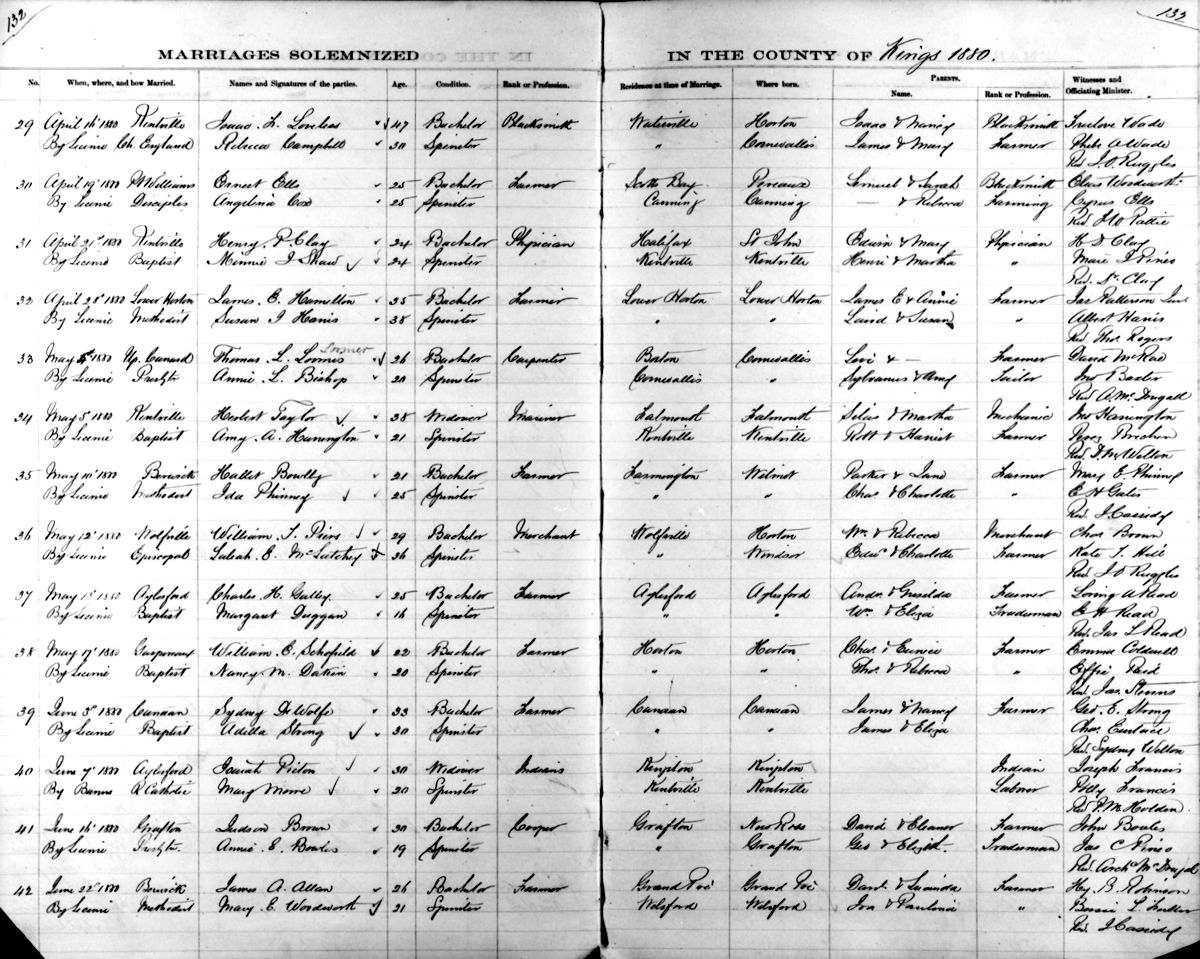 132
133
MARRIAGES SOLEMNIZED IN THE COUNTY OF Kings 1880.
No. When, where, and how Married. Names and Signatures of the parties. Age. Condition. Rank or Profession. Residence at time of Marriage. Where born. PARENTS. Name. Rank or Profession. Witnesses and Officiating Minister.
29 April 14" 1880 Kentville Isaac L. Loveless 47 Bachelor Blacksmith Waterville Horton Isaac & Nancy Blacksmith Truelove Wade
By Licence Ch. England Rebecca Campbell 30 Spinster " Cornwallis James & Mary Farmer Phebe A Wade
Rev J. O. Ruggles
30 April 19" 1880 Pt Williams Ernest Ells 25 Bachelor Farmer Scotts Bay Pereaux Samuel & Sarah Blacksmith Woodworth
By Licence Disciples Angelina Cox 25 Spinster Canning Canning — & Rebecca Farming Cyrus Ells
Rev
31 April 21st 1880 Kentville Henry P. Clay 24 Bachelor Physician Halifax St John Edwin & Mary Physician H D Clay
By Licence Baptist Minnie I Shaw 24 Spinster Kentville Kentville Henri & Martha " Marie Pineo
Rev. Dr Clay
32 April 28" 1880 Lower Horton James E. Hamilton 35 Bachelor Farmer Lower Horton Lower Horton James E & Annie Farmer Jas Patterson
By Licence Methodist Susan I Harris 38 Spinster " " Laird & Susan " Albert Harris
Rev Thos. Rogers
33 May 1880 Up. Canard Thomas L. Loomis Loomer 26 Bachelor Carpenter Boston Cornwallis Levi & — Farmer David McRae
By Licence Presbytr Annie L. Bishop 20 Spinster Cornwallis " Sylvanus & Amy Sailor Jno Baxter
Rev A. McDougall
34 May 5" 1880 Kentville Herbert Taylor 38 Widower Mariner Falmouth Falmouth Silas & Martha Mechanic Harrington
By Licence Baptist Amy A. Harrington 21 Spinster Kentville Kentville Robt & Harriet Farmer
Rev
35 May 10" 1880 Berwick Hallet Bowlby 21 Bachelor Farmer Farmington Wilmot Parker & Jane Farmer Mary E. Phinney
By Licence Methodist Ida Phinney 25 Spinster " " Chas. & Charlotte " E H Gates
Rev. J. Cassidy
36 May 12" 1880 Wolfville William 29 Bachelor Merchant Wolfville Horton Wm. & Rebecca Merchant Chas Brown
By Licence Episcopal 36 Spinster " Windsor Edw. & Charlotte Farmer Kate Hill
Rev J. O Ruggles
37 May 1880 Aylesford Charles H. 25 Bachelor Farmer Aylesford Aylesford Andw. & Griselda Farmer Loring A Read
By Licence Baptist Margaret Duggan 16 Spinster " " Wm. & Eliza Tradesman E H Read
Rev. Jas L Read
38 May 17" 1880 Gaspereaux William E. Schofield 22 Bachelor Farmer Horton Horton Chas. & Eunice Farmer Emma Coldwell
By Licence Baptist Nancy M. Dakin 20 Spinster " " Thos. & Rebecca " Effie Reid
Rev Jas. Stevens
39 June 3rd 1880 Canaan Sydney DeWolfe 33 Bachelor Farmer Canaan Canaan James & Nancy Farmer Geo. E. Strong
By Licence Baptist Adella Strong 30 Spinster " " James & Eliza Chas. Eustace
Rev Sydney Welton
40 June 7" 1880 Aylesford Isaiah Picton 30 Widower Indians Kingston Kingston Indian Joseph Francis
By Banns R Catholic Mary 20 Spinster Kentville Kentville Labrer Polly Francis
Rev P M Holden
41 June 16" 1880 Grafton Judson Brown 20 Bachelor Cooper Grafton New Ross David & Eleanor Farmer John Bowles
By Licence Presbytr Annie E. Bowles 19 Spinster " Grafton Geo & Elizabt. Tradesman Jas C Pineo
Rev. Archd McDougal
42 June 22nd 1880 Berwick James A. Allan 26 Bachelor Farmer Grand Pré Grand Pré Davd. & Lucinda Farmer Hy. B. Robinson
By Licence Methodist Mary E. Woodworth 21 Spinster Welsford Welsford Ira & Paulina " Bessie L. Fuller
Rev. J Cassidy